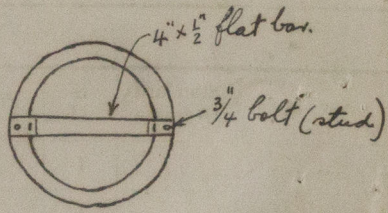 4" x 1/2" flat bar.
3/4" bolt (stud)